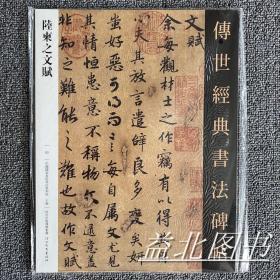 傳世經典書法碑帖
文賦
余每觀材士之作竊有以得其
夫其放言遣辭良多變矣
妍蚩好惡可得而言每自屬文尤見
其情恒患意不稱物文不逮意蓋
非知之難能之難也
陸柬之文賦
益北图书